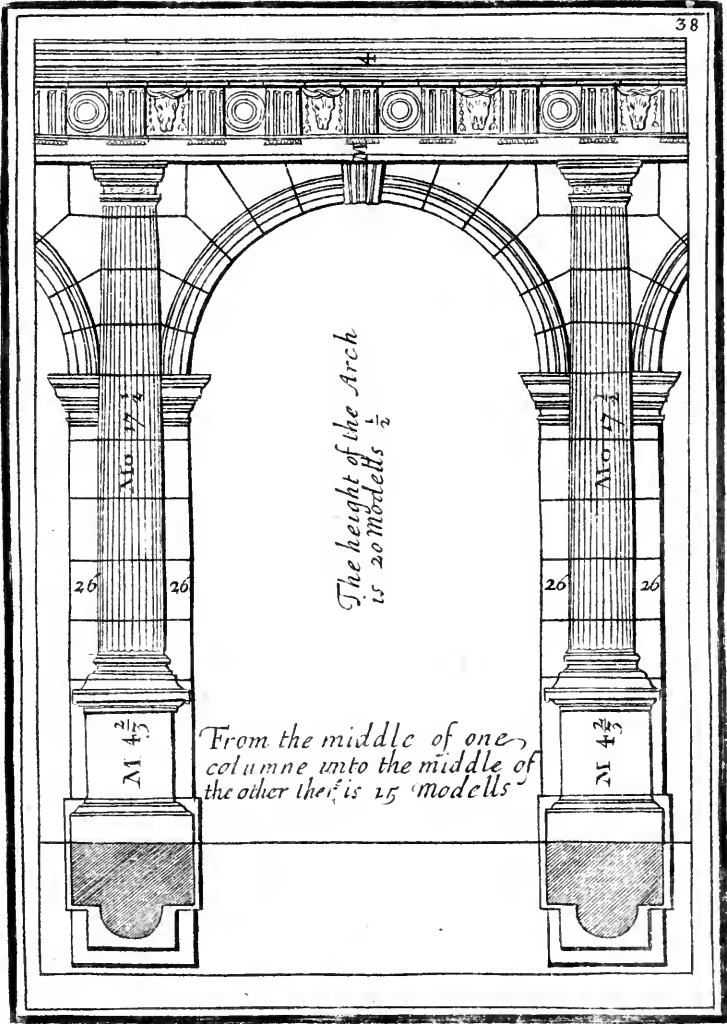 38
4
M
The height of the Arch
is 20 Modells 1/2
Mo 17 1/4
Mo 17 1/2
26
26
26
26
M 4 2/3
M 4 2/3
From the middle of one
columne unto the middle of
the other ther is 15 Modells